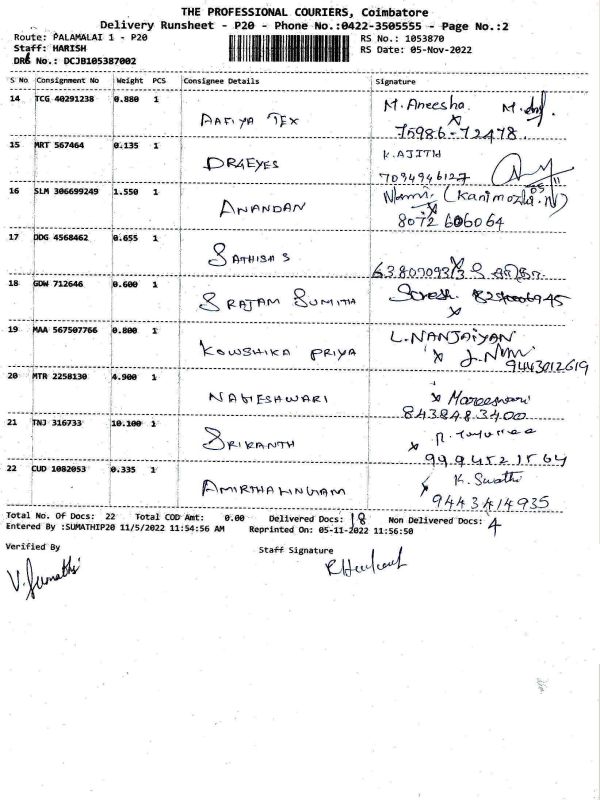 THE PROFESSIONAL COURIERS, Coimbatore
Delivery Runsheet - P20 - Phone No.:0422-3505555 - Page No.:2
Route: PALAMALAI 1 - P20 RS No.: 1053870
Staff: HARISH RS Date: 05-Nov-2022
DRS No.: DCJB105387002
S No Consignment No Weight PCS Consignee Details Signature
14 TCG 40291238 0.880 1 AAFIYA TEX M. Aneesha.
75986-72478
15 MRT 567464 0.135 1 DR4EYES K. AJITH
7094946127
16 SLM 306699249 1.550 1 ANANDAN (Kanimozhi.N)
8072 606064
17 DDG 4568462 0.655 1 SATHISH S
18 GDW 712646 0.600 1 S RAJAM SUMITH Suresh.
19 MAA 567507766 0.800 1 KOWSHIKA PRIYA L. NANJAIYAN
9443012619
20 MTR 2258130 4.900 1 NAGESHWARI Mareeswari
8438483400
21 TNJ 316733 10.100 1 SRIKANTH
9994521564
22 CUD 1082053 0.335 1 AMIRTHALINGAM K. Swathi
9443414935
Total No. Of Docs: 22 Total COD Amt: 0.00 Delivered Docs: 18 Non Delivered Docs: 4
Entered By :SUMATHIP20 11/5/2022 11:54:56 AM Reprinted On: 05-11-2022 11:56:50
Verified By Staff Signature
V. Sumathi